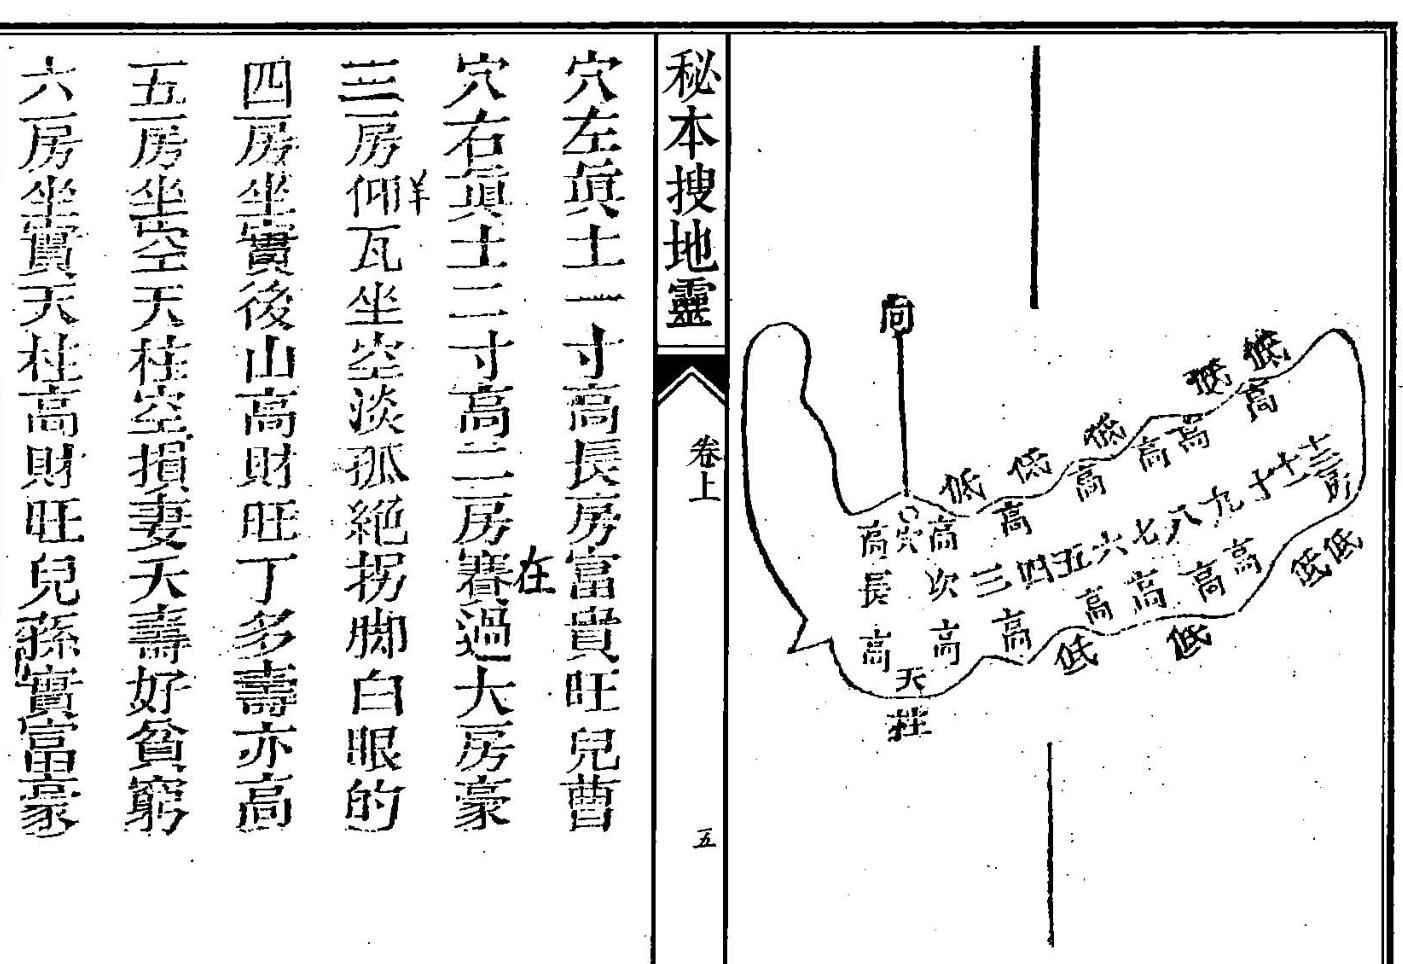 向
低低低低低低
高高高高高高
高穴高
長次三四五六七八九十十一十二房
高高高高高高高
低低低低
天
柱
秘本搜地靈
卷上
五
穴左眞土一寸高長房富貴旺兒曹
穴右眞土二寸高二房賽過大房豪
在
三房仰瓦坐空淡孤絕拐脚白眼的
四房坐實後山高財旺丁多壽亦高
五房坐空天柱空損妻夭壽好貧窮
六房坐實天柱高財旺兒孫實富豪